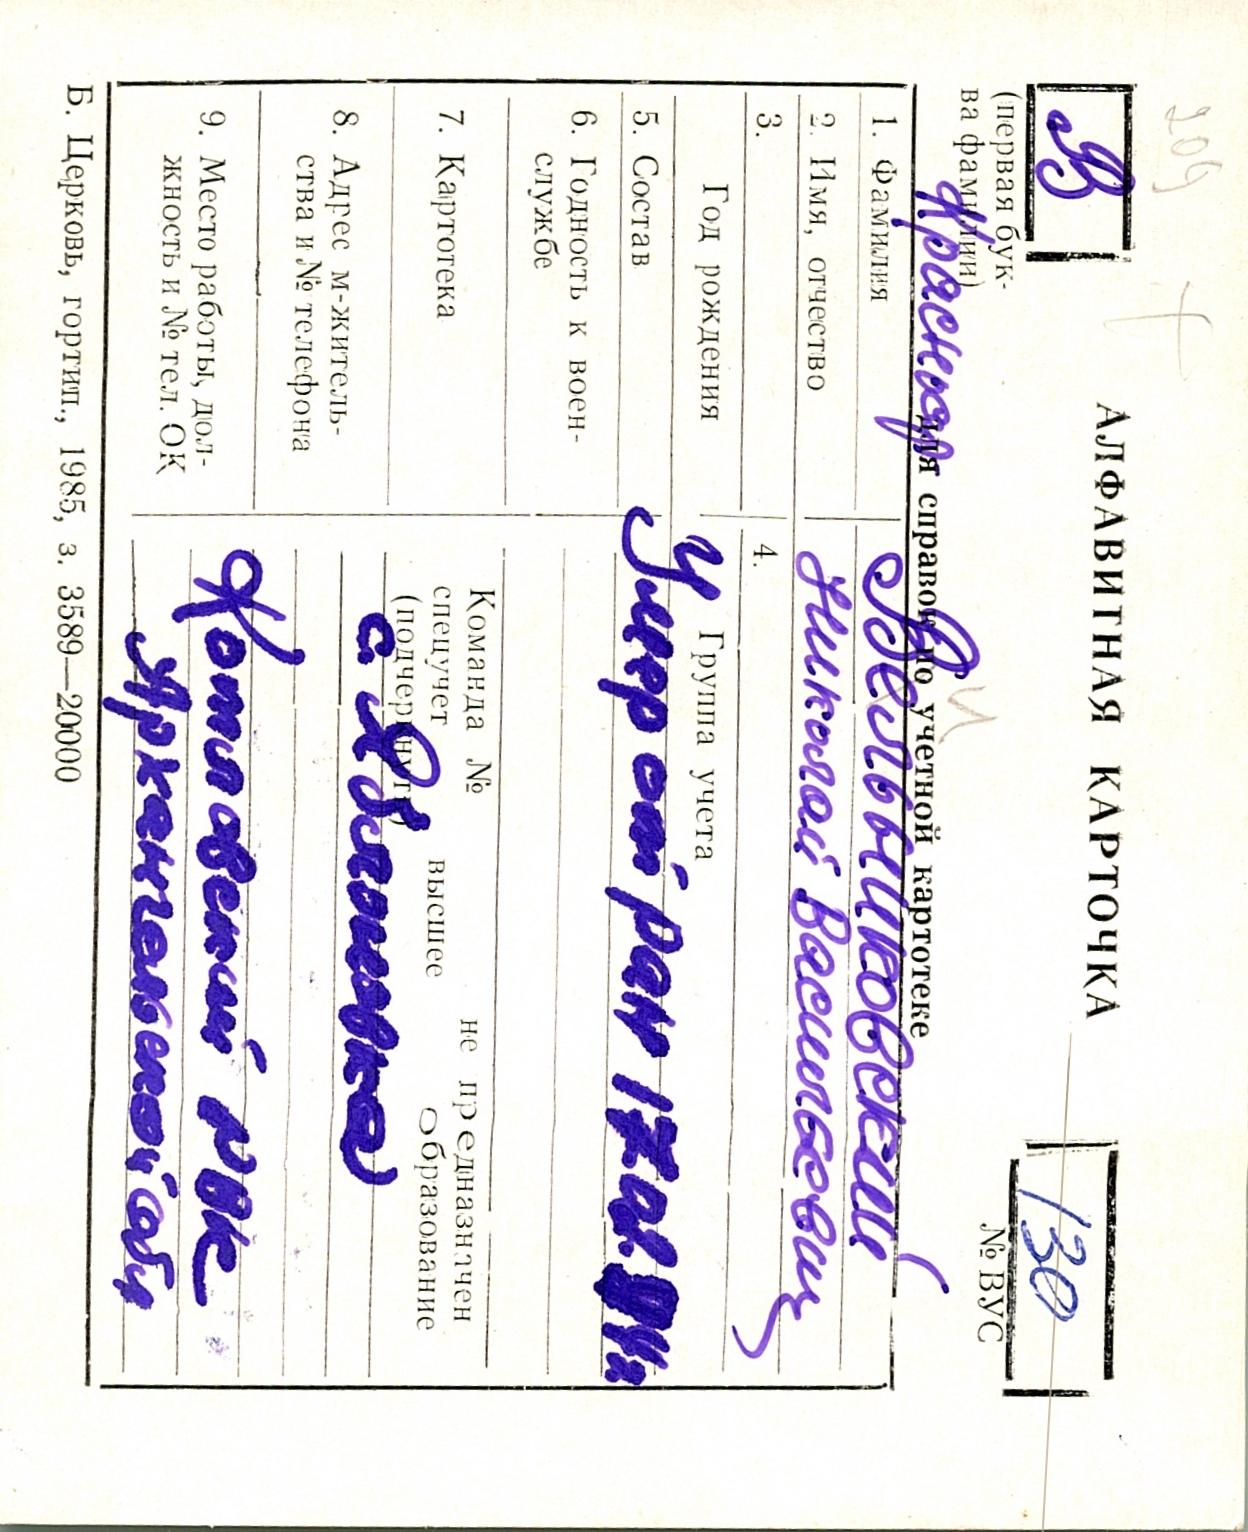 209
АЛФАВИТНАЯ КАРТОЧКА
В
130
(первая бук-
ва фамилии)
№ ВУС
для справок по учетной картотеке
1. Фамилия
Вельышковский
2. Имя, отчество
Николай Васильевич
3.
Год рождения
4.
Группа учета
5. Состав
Умер от ран 17.01.44г
6. Годность к воен-
службе
7. Картотека
Команда №
не предназначен
спецучет
высшее
образование
(подчеркнуть)
8. Адрес м-житель-
ства и № телефона
с.
9. Место работы, дол-
жность и № тел. ОК
Котлавский РВК
Архангельской обл
Б. Церковь, гортип., 1985, з. 3589—20000